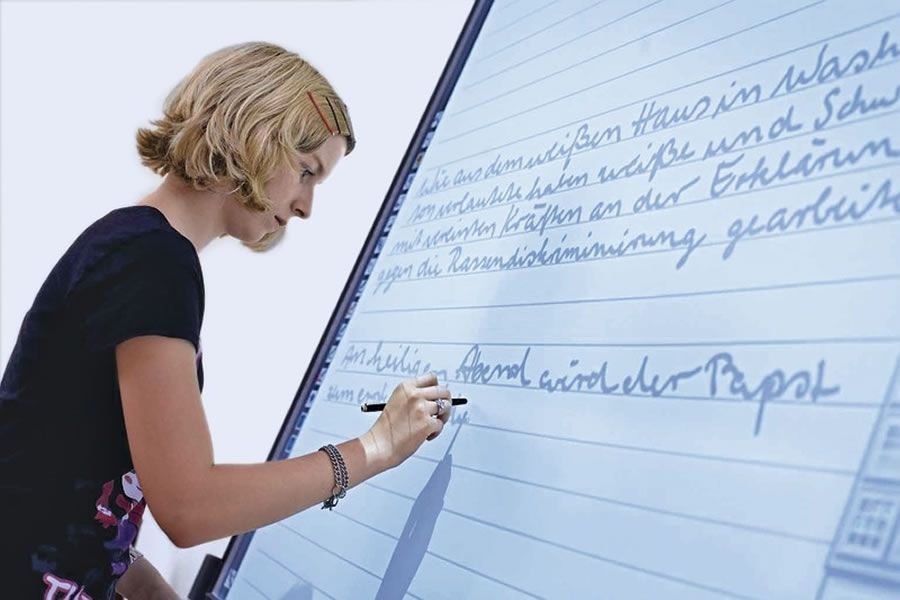 Wie aus dem weißen Haus in Wash
ton verlautete haben weiße und Schw
mit vereinten Kräften an der Erklärun
gegen die Rassendiskriminierung gearbeite
Am heiligen Abend wird der Papst
zum